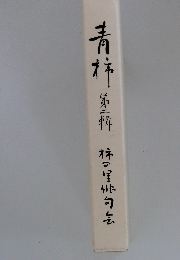 青柿
第二輯
柿の里俳句会